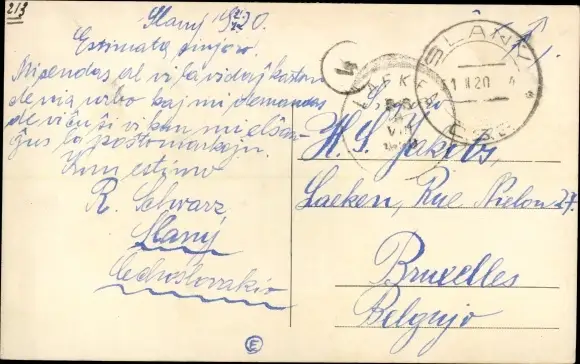 213
Slaný
Estimata sinjoro.
Mi sendas al vi la vidaj karton
de nia urbo kaj mi demandas
de vi ĉu ĝi vi kun mi elŝan-
ĝus la poŝtomarkojn.
Kun estimo
R. Schwarz,
Slaný
Ĉeĥoslovakio
4
LAEKEN
SLANÝ
1 II 20
S-ro
H. S. Jakobs,
Laeken, Rue Thielen 27.
Bruxelles
Belgujo
E